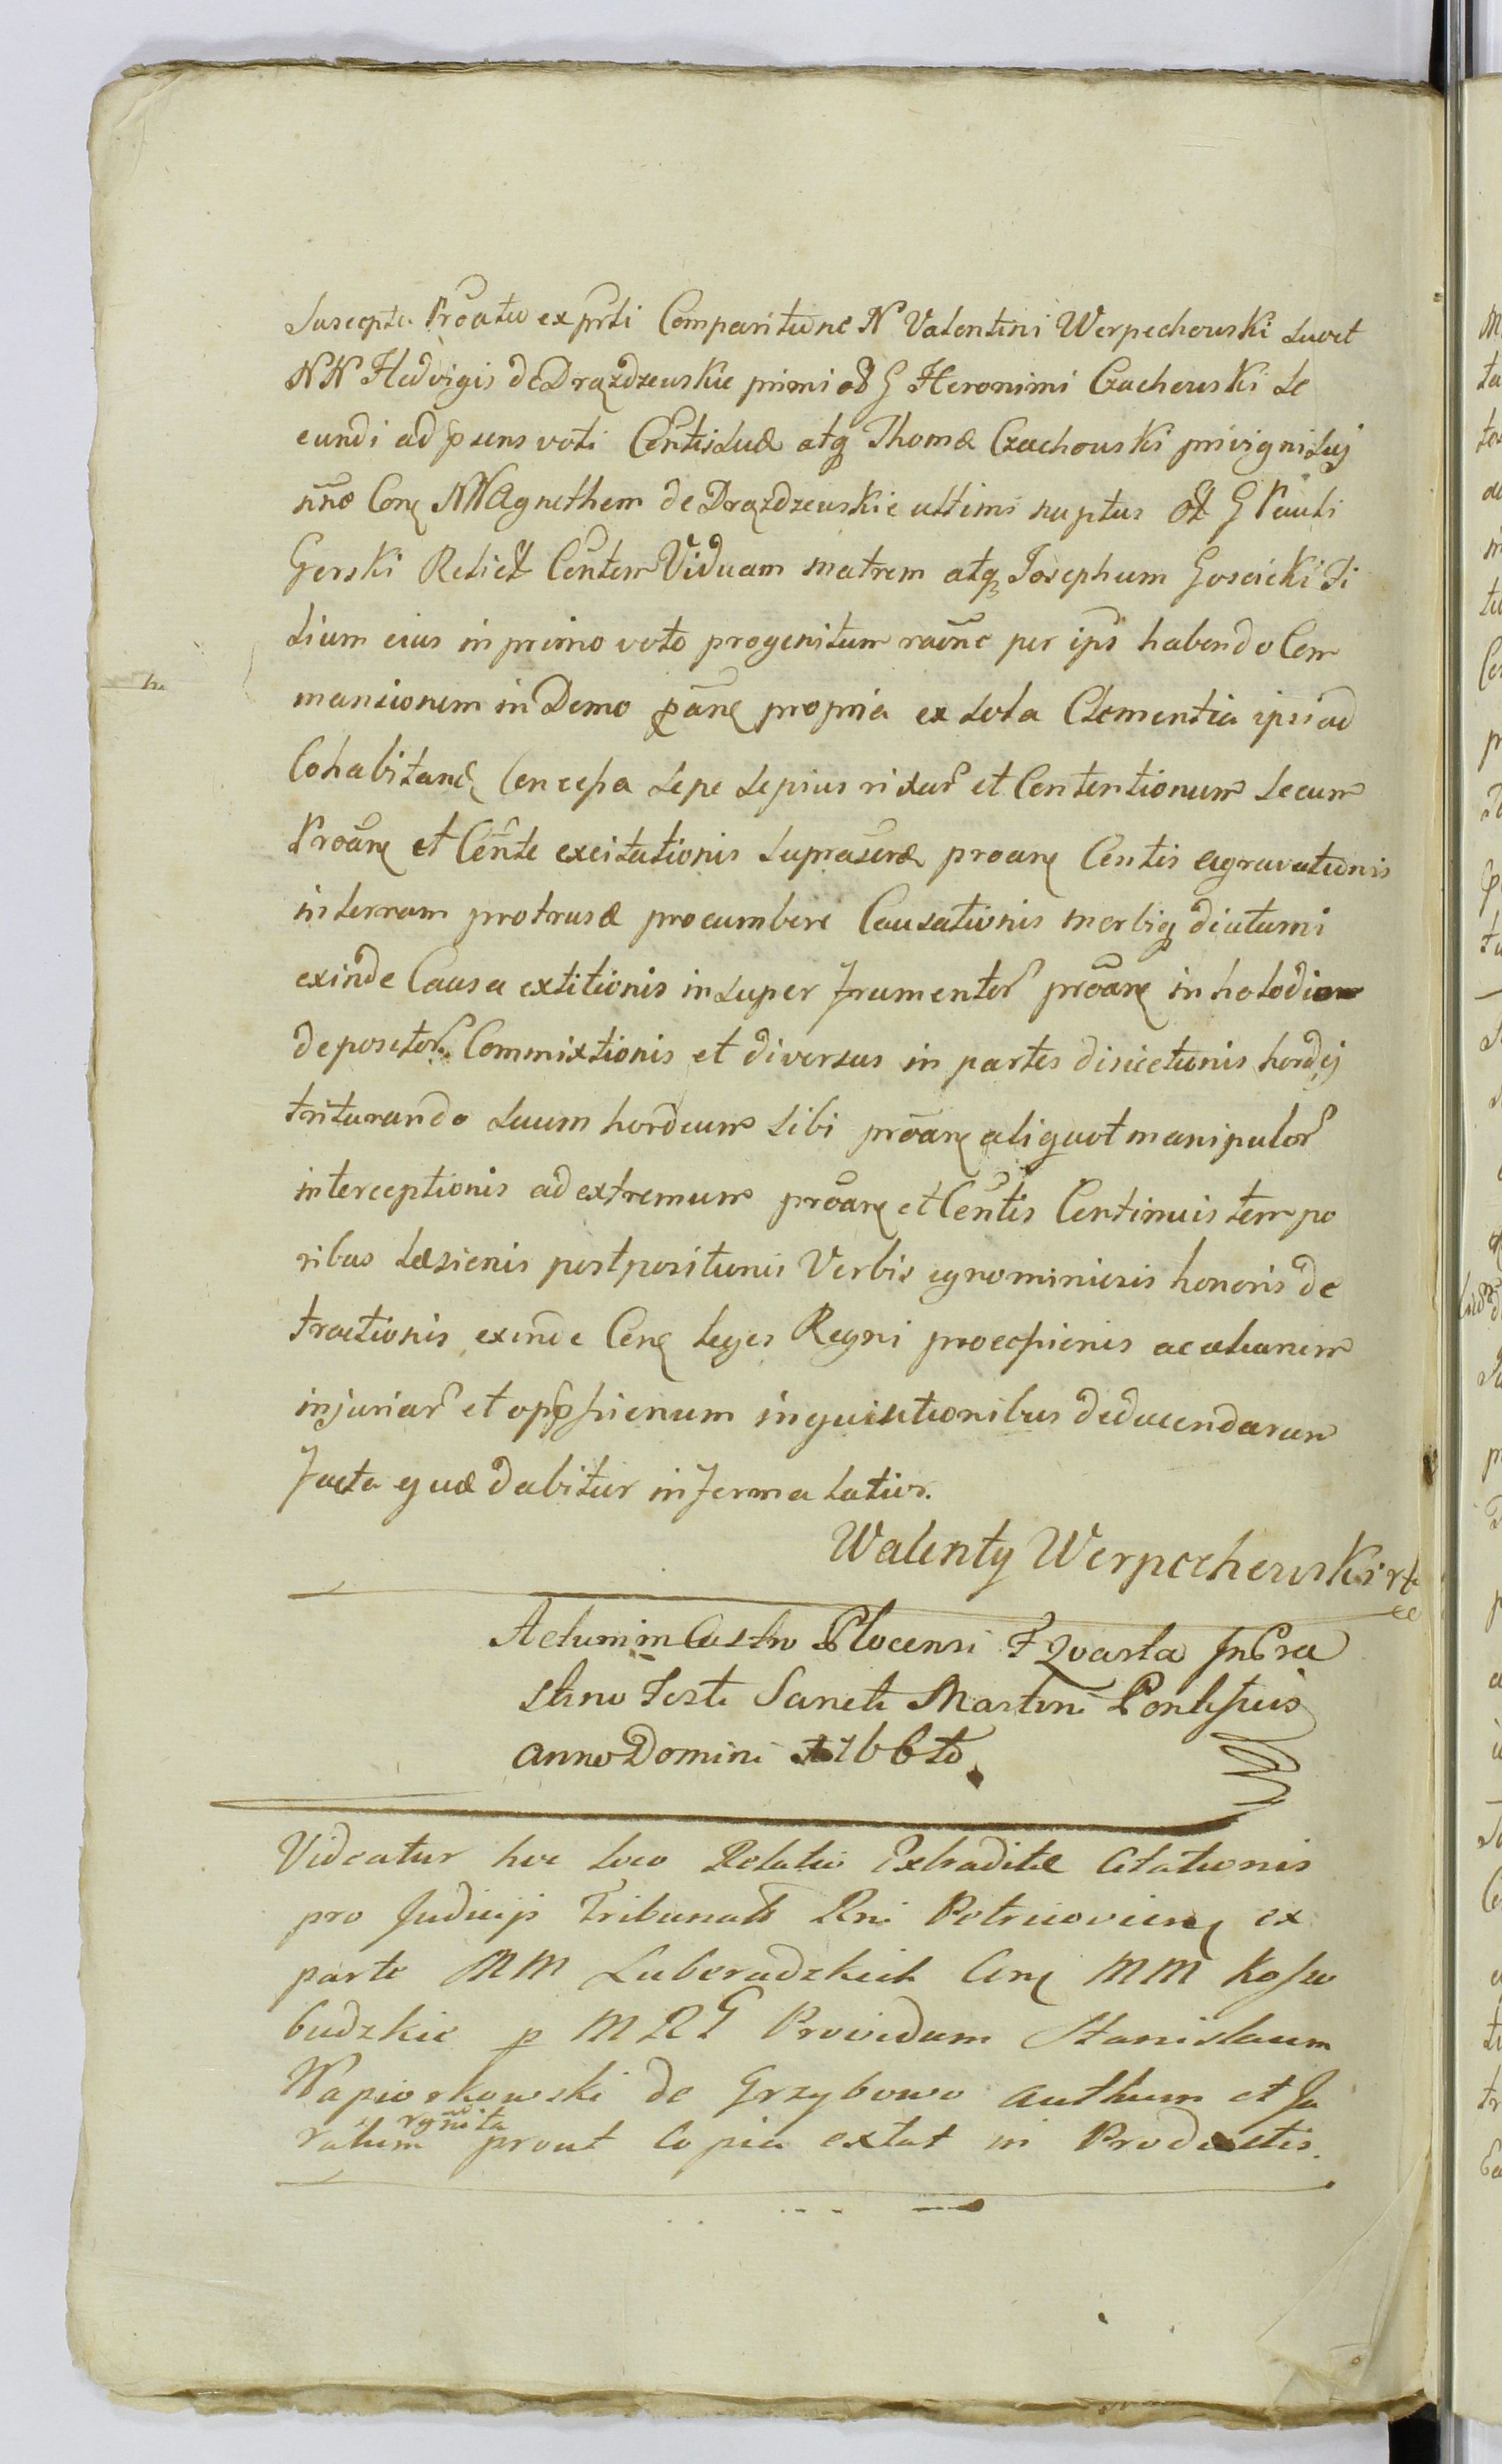 Suscepta Proatio ex prti Comparitionc N Valentini Werpechowski suoet
NN Hedvigis de Drązdzewskie primi ol G Heronimi Czachowski se
cundi ad psens voti Contis suæ atq Thomæ Czachowski privigni suj
nno Conq NN Agnethem de Drązdzewskie ultimi nuptus ol G Pauli
Gorski Relict Contem Viduam matrem atq Josephum Goscicki Fi
lium eius in primo voto progenitum raone per ips habendo Com
mansionem in Domo pänq propria ex sola Clementia ipsi ad
Cohabitanđ Concessa sepe sepius rixar et Contentionum secum
Proãnq et Cõnte excitationis supraseræ proanq Contis agravationis
in terram protrusæ procumbere Causationis morbiq diuturni
exinde Causa extitionis insuper frumentor proãnq in holodiom
depositor Commixtionis et diversas in partes disiectionis hordej
triturando suum hordeum sibi proãnq aliquot manipulor
interceptionis ad extremum proãnq et Contis Continuis tempo
ribus læsionis postpositionis Verbis ignominiosis honoris de
tractionis exinde Conq leges Regni processionis ac aliarum
injuriar et oppssionum inquisitionibus deducendarum
facta quæ dabitur in forma latior.
Walenty Werpechowski
Actum in Castro Plocensi F Quarta In Cra
stino Festi Sancti Martini Pontificis
anno Domini 1766to
Videatur hoc loco Relatio Extraditæ Citationis
pro Judicijs Tribunats Rni Petricovienq ex
parte MM Luberadzkich Conq MM Kosso
budzkie p M R G Providum Stanislaum
Napiorkowski de Grzybowo authum et Ju
ratum rgnita prout Copia extat in Productis.